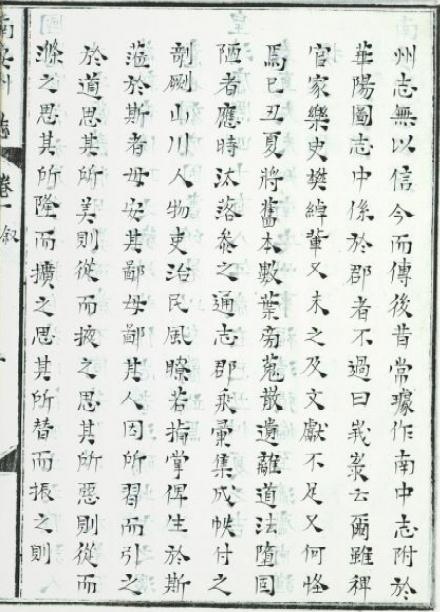 州志無以信今而傳後昔常璩作南中志附於
華陽圖志中係於郡者不過曰峩峩云爾雖稗
官家樂史樊綽輩又未之及文獻不足又何怪
焉已丑夏將舊本數葉旁蒐散遺離道法墮回
陋者應時汰落叅之通志郡乘彙集成帙付之
剞劂山川人物吏治民風瞭若指掌俾生於斯
蒞於斯者毋安其鄙毋鄙其人因所習而引之
於道思其所美則從而掖之思其所惡則從而
滌之思其所隆而擴之思其所替而振之則
南 州志 卷一 叙